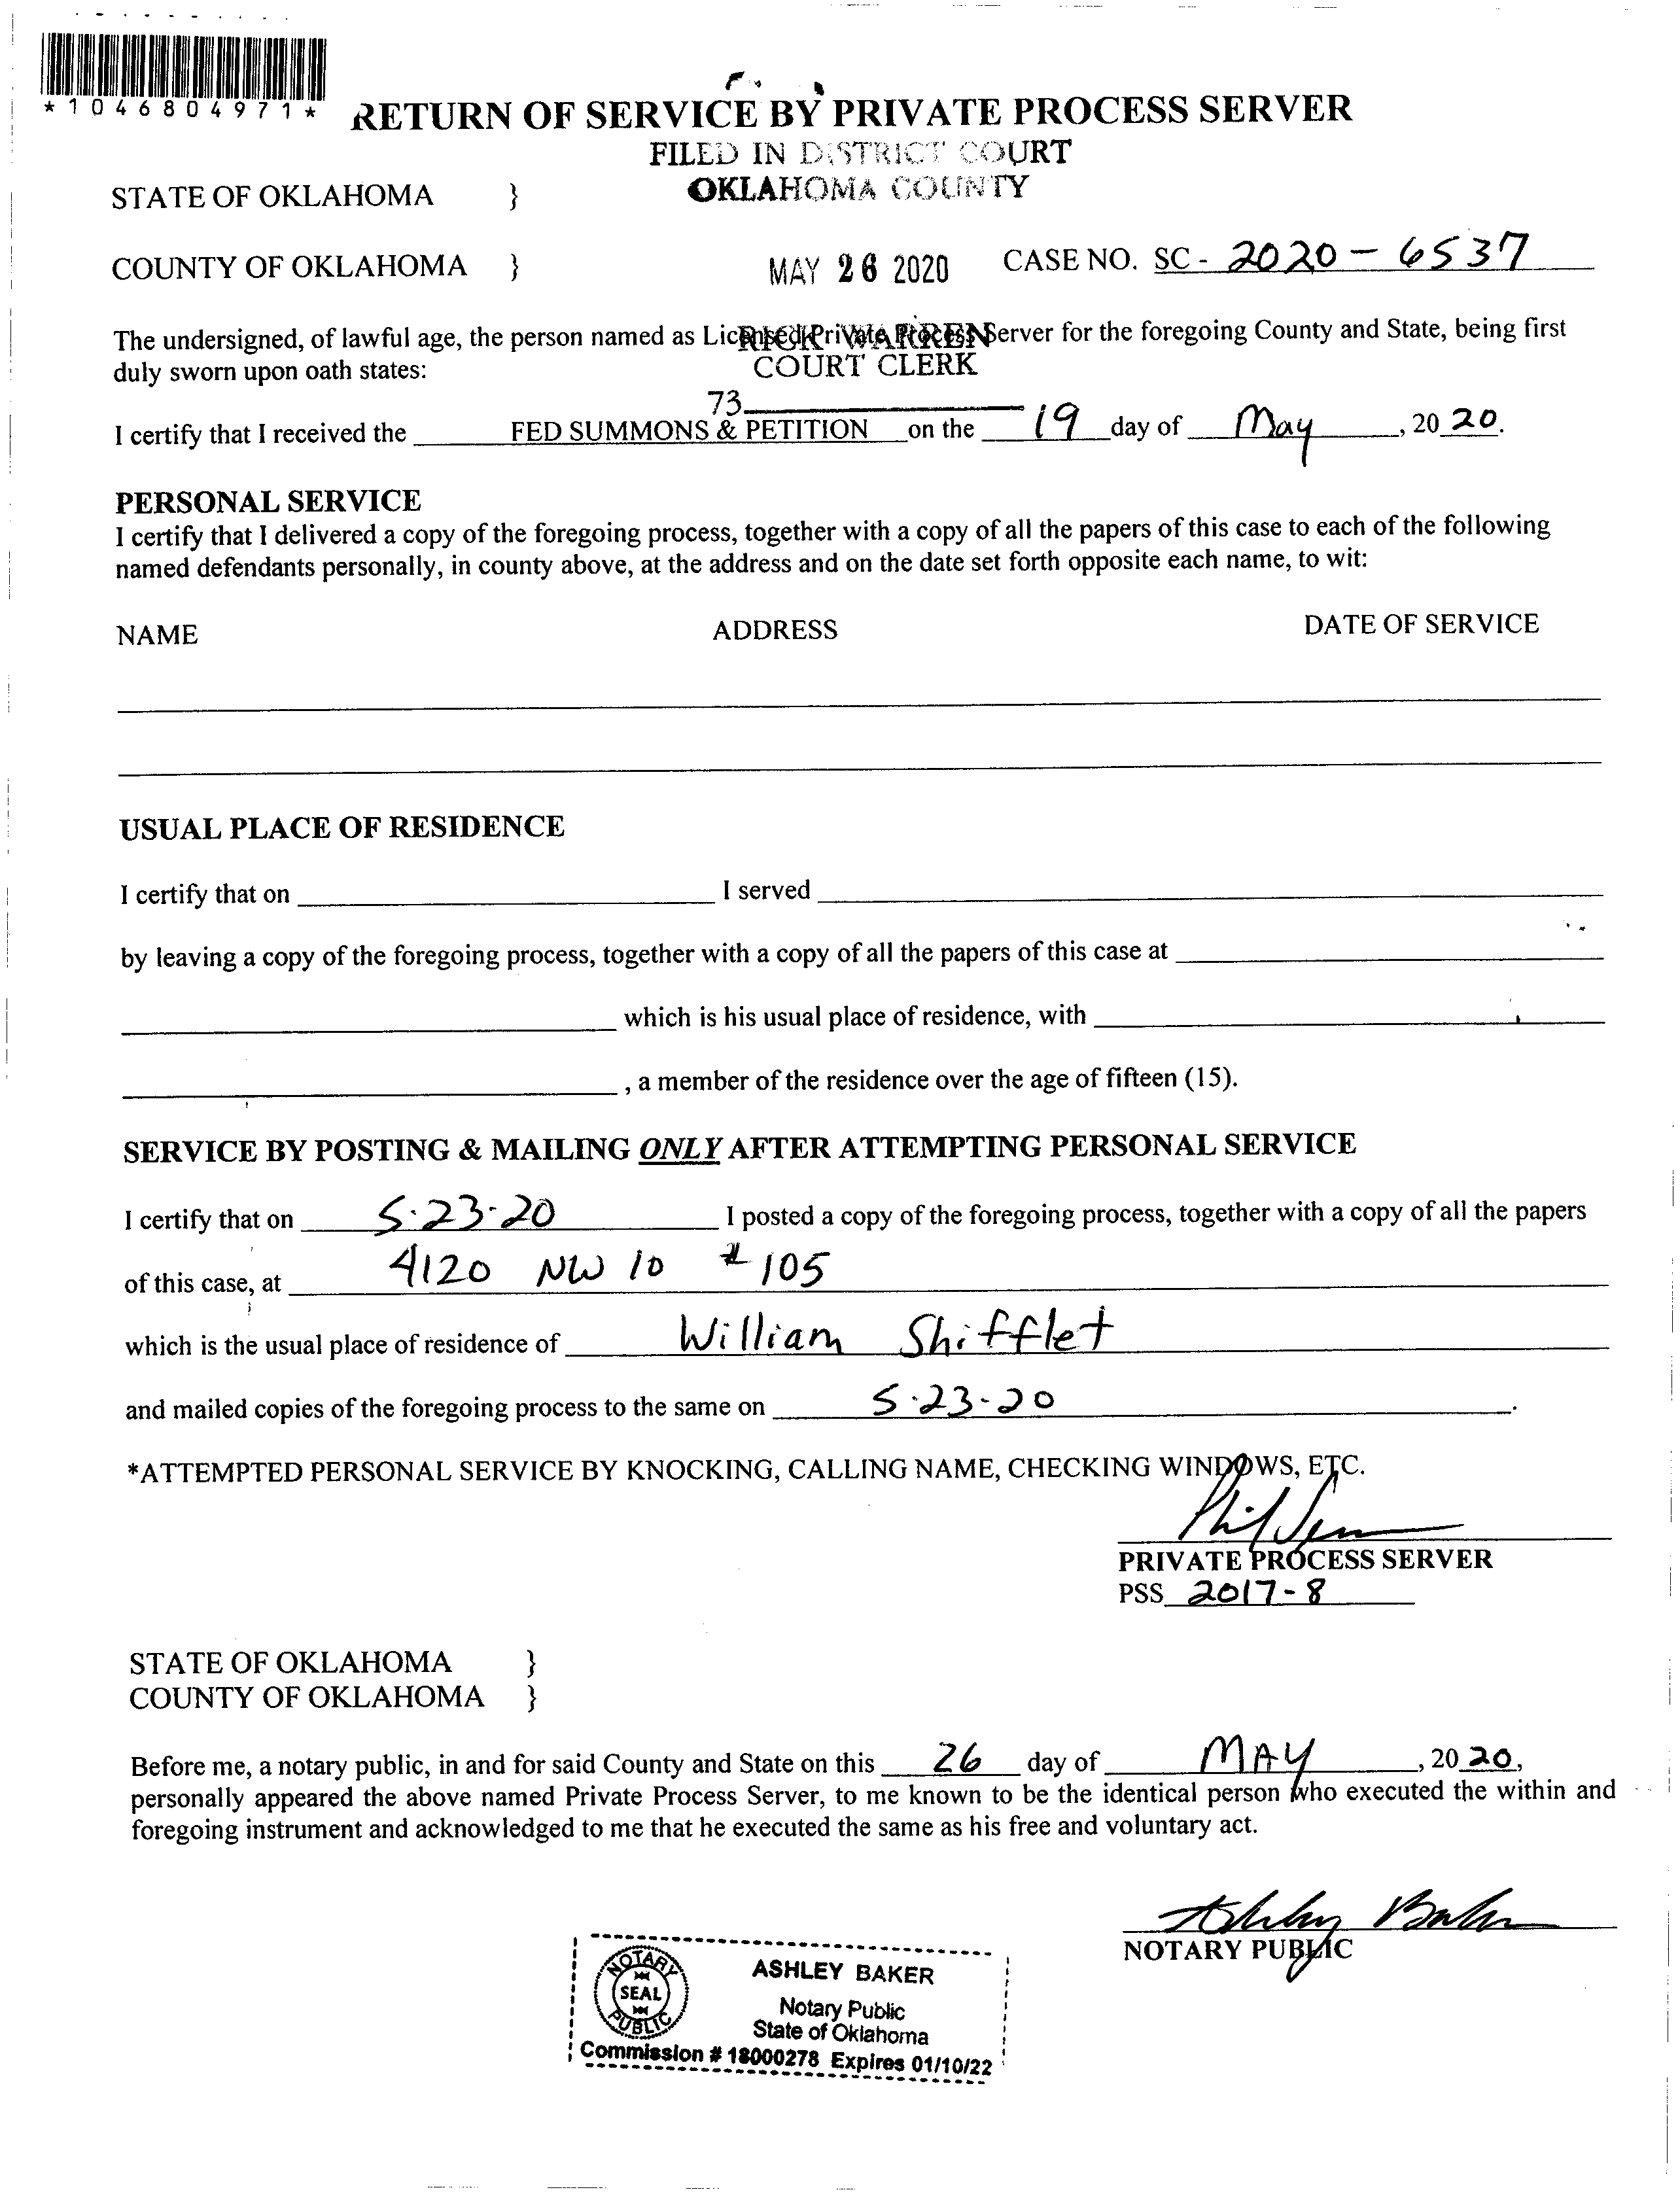 *1046804971*
RETURN OF SERVICE BY PRIVATE PROCESS SERVER
FILED IN DISTRICT COURT
OKLAHOMA COUNTY
STATE OF OKLAHOMA }
COUNTY OF OKLAHOMA } MAY 26 2020 CASE NO. SC - 2020 - 6537
The undersigned, of lawful age, the person named as Licensed Private Process Server for the foregoing County and State, being first
RICK WARREN
duly sworn upon oath states: COURT CLERK
73
I certify that I received the FED SUMMONS & PETITION on the 19 day of May, 20 20.
PERSONAL SERVICE
I certify that I delivered a copy of the foregoing process, together with a copy of all the papers of this case to each of the following
named defendants personally, in county above, at the address and on the date set forth opposite each name, to wit:
NAME ADDRESS DATE OF SERVICE
USUAL PLACE OF RESIDENCE
I certify that on I served
by leaving a copy of the foregoing process, together with a copy of all the papers of this case at
which is his usual place of residence, with
, a member of the residence over the age of fifteen (15).
SERVICE BY POSTING & MAILING ONLY AFTER ATTEMPTING PERSONAL SERVICE
I certify that on 5.23-20 I posted a copy of the foregoing process, together with a copy of all the papers
of this case, at 4120 NW 10 #105
which is the usual place of residence of William Shifflet
and mailed copies of the foregoing process to the same on 5.23-20.
*ATTEMPTED PERSONAL SERVICE BY KNOCKING, CALLING NAME, CHECKING WINDOWS, ETC.
PRIVATE PROCESS SERVER
PSS 2017-8
STATE OF OKLAHOMA }
COUNTY OF OKLAHOMA }
Before me, a notary public, in and for said County and State on this 26 day of MAY, 20 20,
personally appeared the above named Private Process Server, to me known to be the identical person who executed the within and
foregoing instrument and acknowledged to me that he executed the same as his free and voluntary act.
Ashley Baker
NOTARY PUBLIC
NOTARY SEAL PUBLIC
ASHLEY BAKER
Notary Public
State of Oklahoma
Commission # 18000278 Expires 01/10/22